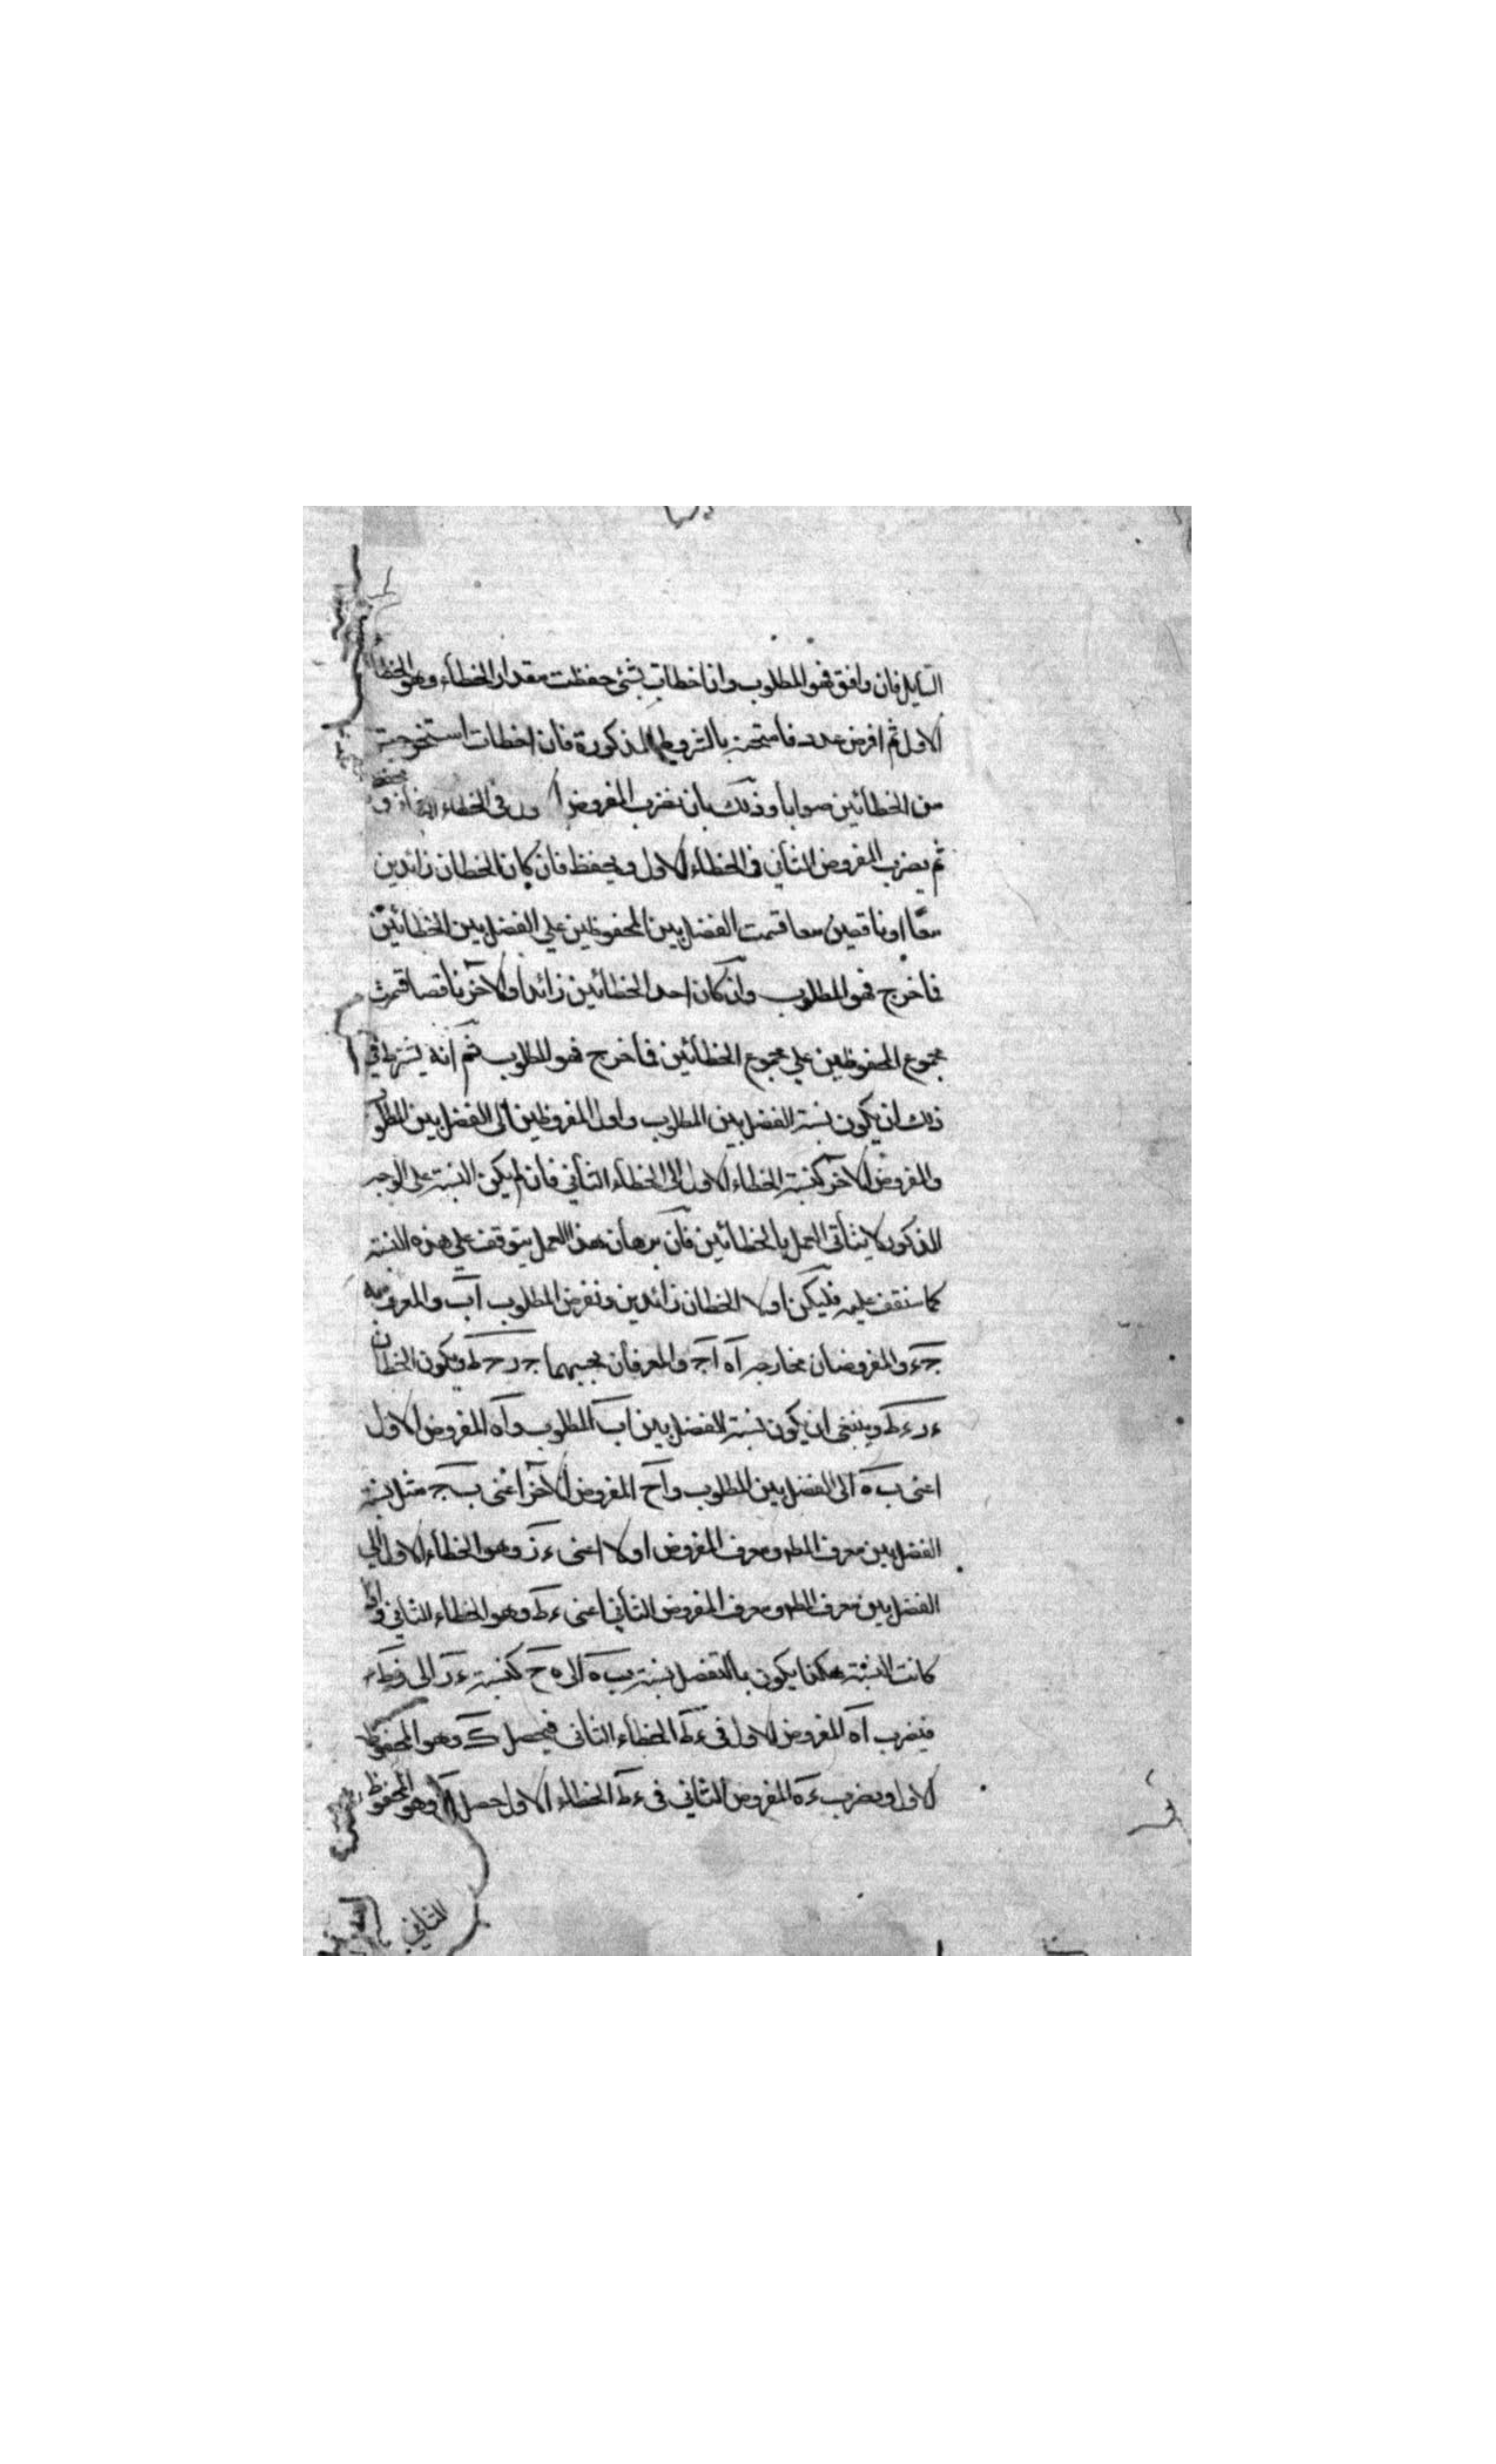 السايل فان وافق فهو المطلوب وان اخطات بشئ حفظت مقدار الخطاء وهو الخطا
الاول ثم افرض عدد فامتحنه بالشروط المذكورة فان اخطات استخرجت
من الخطائين صوابا وذلك بان تضرب المفروض الاول فى الخطاء
ثم يضرب المفروض الثانى فى الخطاء الاول ويحفظ فان كان الخطان زائدين
معًا او ناقصين معا قسمت الفضل بين المحفوظين على الفضل بين الخطائين
فما خرج فهو المطلوب وان كان احد الخطائين زائدا والاخر ناقصا قسمت
مجموع المحفوظين على مجموع الخطائين فما خرج فهو المطلوب ثم انه يشترط فى
ذلك ان يكون نسبة الفضل بين المطلوب واول المفروضين الى الفضل بين المطلوب
والمفروض الاخر كنسبة الخطاء الاول الى الخطاء الثانى فان لم يكن النسبة على الوجه
المذكور لا يتأتى العمل بالخطائين فان برهان هذا العمل يتوقف على هذه النسبة
كما ستقف عليه فليكن اولا الخطان زائدين ونفرض المطلوب اب والمعرف به
جء والمفروضان بخارجه اه اج والمعرفان بحبهما جر حط ويكون الخطان
ءر ءط وينبغى ان يكون نسبة الفضل بين اب المطلوب واه المفروض الاول
اعنى ب ه الى الفضل بين المطلوب واح المفروض الاخر اعنى ب ج مثل نسبة
الفضل بين معرف المط ومعرف المفروض اولا اعنى ءز وهو الخطاء الاول الى
الفضل بين معرف المط ومعرف المفروض الثانى اعنى ءط وهو الخطاء الثانى واذا
كانت النسبة هكذا يكون بالتفضل نسبة ب ه الى ه ح كنسبة ءر الى
فيضرب اه المفروض الاول فى ءط الخطاء الثانى فيحصل ك وهو المحفوظ
الاول ويضرب ءه المفروض الثانى فى ءط الخطاء الاول حصل وهو المحفوظ
الثانى